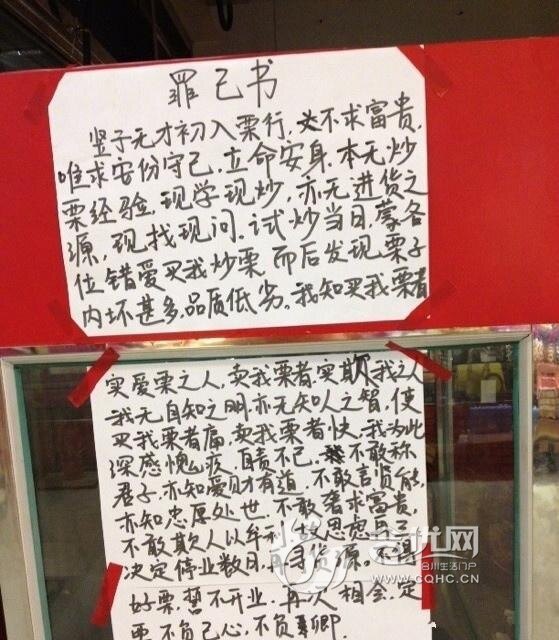 罪己书
竖子无才初入栗行，不求富贵，
唯求安份守己，立命安身，本无炒
栗经验，现学现炒，亦无进货之
源，现找现问，试炒当日，蒙各
位错爱买我炒栗，而后发现栗子
内坏甚多，品质低劣。我知买我栗者
实爱栗之人，卖我栗者，实欺我之人
我无自知之明，亦无知人之智，使
买我栗者痛，卖我栗者快，我为此
深感愧疚，自责不已，不敢称
君子，亦知爱财有道，不敢言贤能，
亦知忠厚处世，不敢奢求富贵，
不敢欺人以牟利，故思虑再三
决定停业数日，再寻货源。不
好栗，誓不开业，再次相会，定
不负己心，不负卿
吉优网
合川生活门户
WWW.CQHC.CN